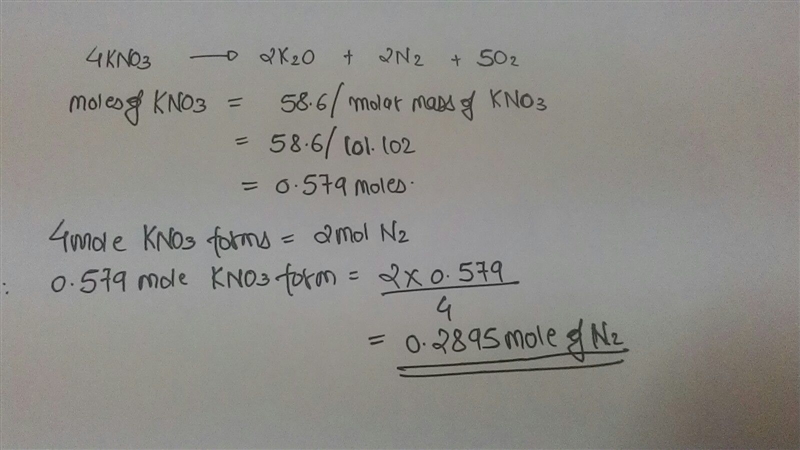 4KNO3 → 2K2O + 2N2 + 5O2
moles of KNO3 = 58.6/molar mass of KNO3
= 58.6/101.102
= 0.579 moles.
4 mole KNO3 forms = 2mol N2
: 0.579 mole KNO3 form = 2 X 0.579
4
= 0.2895 mole of N2